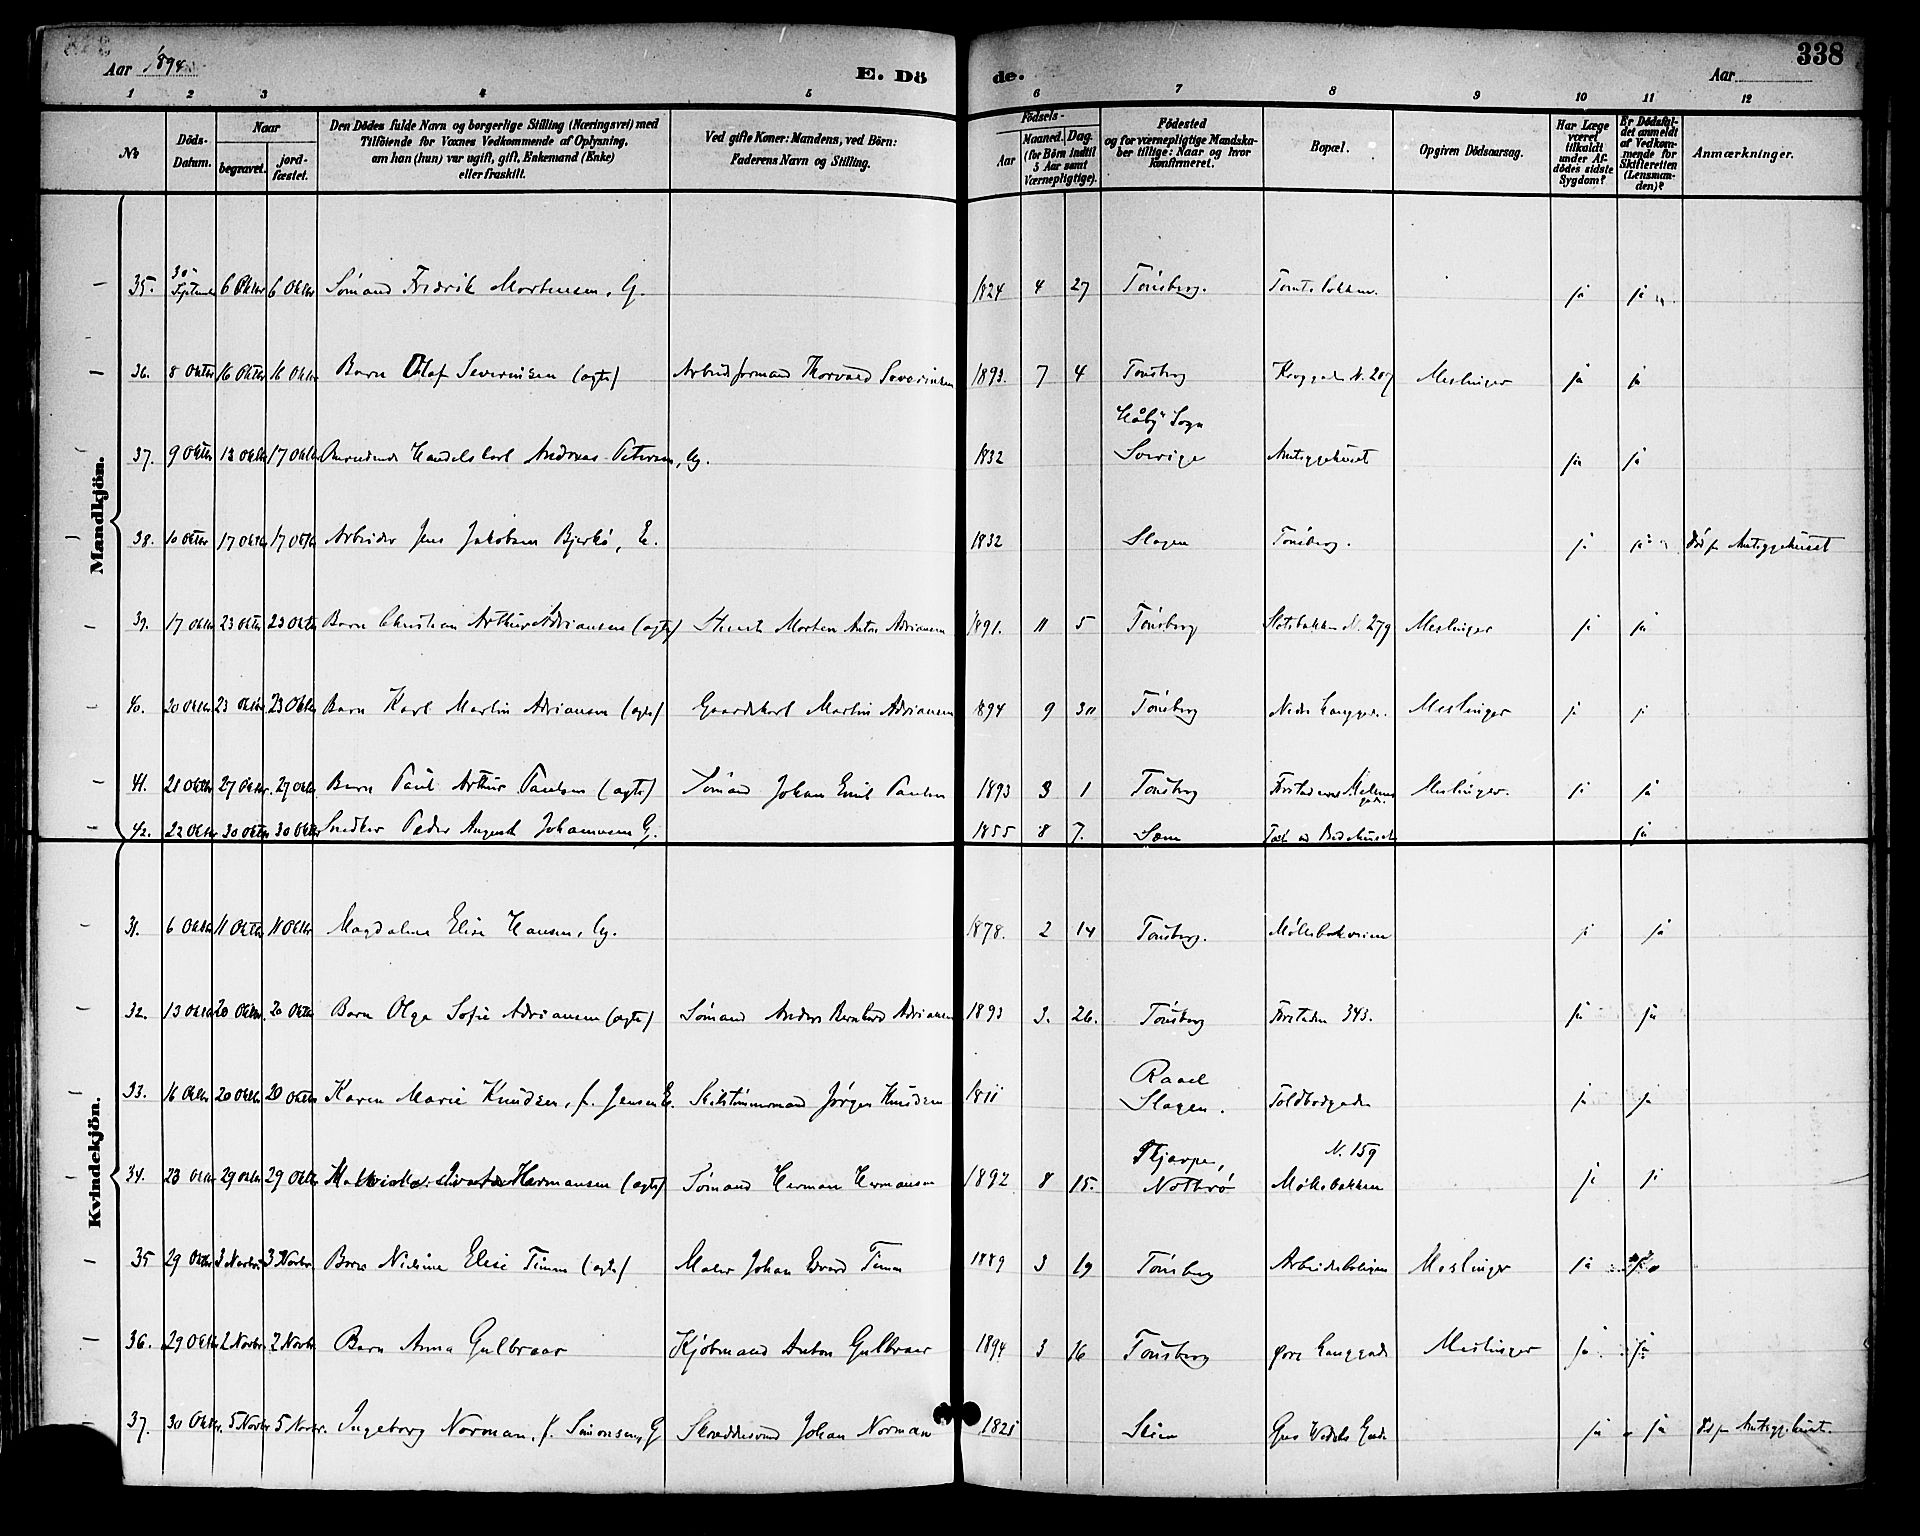 Aar 1894
E. Dö
de.
Aar
338
1 2 3 4 5 6 7 8 9 10 11 12
No
Döds-Datum.
Naar
begravet.
jord-fæstet.
Den Dödes fulde Navn og borgerlige Stilling (Næringsvei) med
Tilföiende for Voxnes Vedkommende af Oplysning,
om han (hun) var ugift, gift, Enkemand (Enke)
eller fraskilt.
Ved gifte Koner: Mandens, ved Börn:
Faderens Navn og Stilling.
Födsels-
Aar
Maaned. Dag.
(for Börn indtil
5 Aar samt
Værnepligtige).
Födested
og for værnepligtige Mandska-
ber tillige: Naar og hvor
konfirmeret.
Bopæl.
Opgiven Dödsaarsag.
Har Læge
været
tilkaldt
under Af-
dödes sidste
Sygdom?
Er Dödsfal-
det anmeldt
af Vedkom-
mende for
Skifteretten
(Lensman-
den)?
Anmærkninger.
Mandkjön.
35. 30 Septembr 6 Oktbr 6 Oktbr Sömand Fredrik Mortensen, G. 1824 4 27 Tönsberg. ja ja
36. 8 Oktbr 16 Oktbr 16 Oktbr Barn Olaf Severinsen (ægte) Arbeidsformand Thorvald Severinsen 1893. 7 4 Tönsberg N. 207 Meslinger ja ja
37. 9 Oktbr 13 Oktbr 17 Oktbr Handelskarl Andreas Petersen, Ug. 1832 Håby Sogn
Sverige Amtssygehuset ja ja
38. 10 Oktbr 17 Oktbr 17 Oktbr Arbeider Jens Jakobsen Bjerkö, E. 1832 Slagen Tönsberg. ja ja Död på Amtssygehuset
39. 17 Oktbr 23 Oktbr 23 Oktbr Barn Christian Arthur Adriansen (ægte) Morten Anton Adriansen 1891. 11 5 Tönsberg Slotsbakken N. 279 Meslinger ja ja
40. 20 Oktbr 23 Oktbr 23 Oktbr Barn Karl Martin Adriansen (ægte) Gaardskarl Martin Adriansen 1894 9 30 Tönsberg Nedre Langgade. Meslinger ja ja
41. 21 Oktbr 27 Oktbr. 27 Oktbr. Barn Paul Arthur Paulsen (ægte) Sömand Johan Emil Paulsen 1893 3 1 Tönsberg Meslinger. ja ja
42. 22 Oktbr 30 Oktbr 30 Oktbr Snedker Peder August Johannesen G. 1855 8 7. Sæm Bedehuset ja
Kvindekjön.
31. 6 Oktbr 11 Oktbr 11 Oktbr Magdalene Elise Hansen, Ug. 1878. 2 14 Tönsberg. ja ja
32. 13 Oktbr 20 Oktbr. 20 Oktbr Barn Olga Sofie Adriansen (ægte) Sömand Anders Bernhard Adriansen 1893 3. 26. Tönsberg Forstaden 343. ja ja
33. 16 Oktbr 20 Oktbr 20 Oktbr Karen Marie Knudsen, f. Jensen E. Skibstömmermand Jörgen Knudsen 1811 Raael
Slagen. Toldbodgaden ja ja
34. 23 Oktbr 29 Oktbr 29 Oktbr Hermansen (ægte) Sömand Herman Hermansen 1892 8 15. Nötterö N. 159
Möllebakken ja ja
35 29 Oktbr 3 Novbr 3 Novbr. Barn Nielsine Elise Timm (ægte) Maler Johan Edvard Timm 1889 3 19 Tönsberg Arbeiderboligen Meslinger ja ja
36. 29 Oktbr 2 Novbr. 2 Novbr. Barn Anna Gulbraar Kjöbmand Anton Gulbraar 1894 3 16 Tönsberg Övre Langgade Meslinger ja ja
37. 30 Oktbr. 5 Novbr 5 Novbr. Ingeborg Norman, f. Simonsen, G Skræddersvend Johan Norman 1821 Sem Grev Wedels Gade ja ja Död på Amtssygehuset.